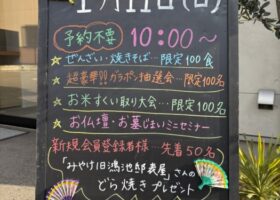 1月11日(日)
予約不要 10:00～
☆ぜんざい・焼きそば…限定100食
☆超豪華!!ガラポン抽選会…限定100名
☆お米すくい取り大会…限定100名
☆お仏壇・お墓じまいミニセミナー
新規会員登録者様…先着50名
「みやけ旧鴻池邸表屋」さんの
どら焼きプレゼント